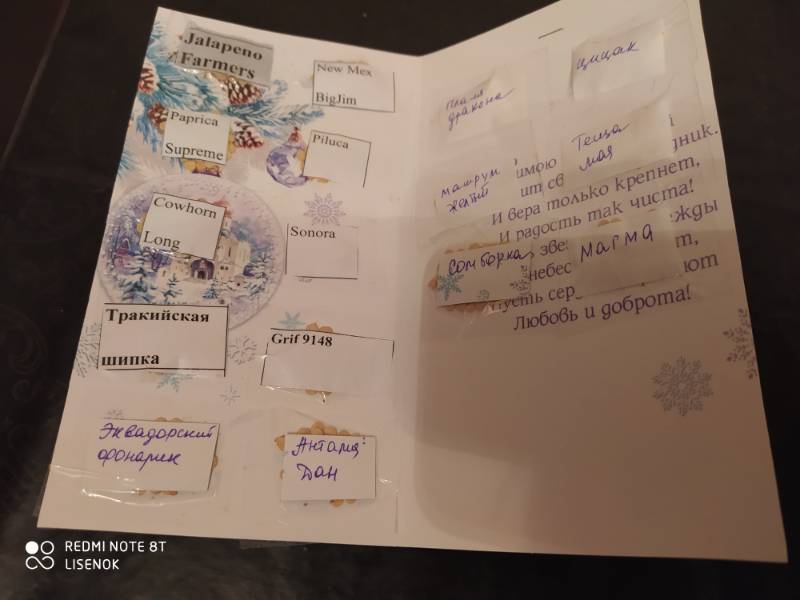 Jalapeno
Farmers
New Mex
BigJim
Paprica
Supreme
Piluca
Cowhorn
Long
Sonora
Тракийская
шипка
Grif 9148
Эквадорский
фонарик
Анталия
Дан
Пламя
дракона
цицак
машрум
желтый
Теща
моя
Сомборка
Магма
имою
дник.
ит св
И вера только крепнет,
И радость так чиста!
зве
жды
небес
т,
Пусть сер
ют
Любовь и доброта!
REDMI NOTE 8T
LISENOK